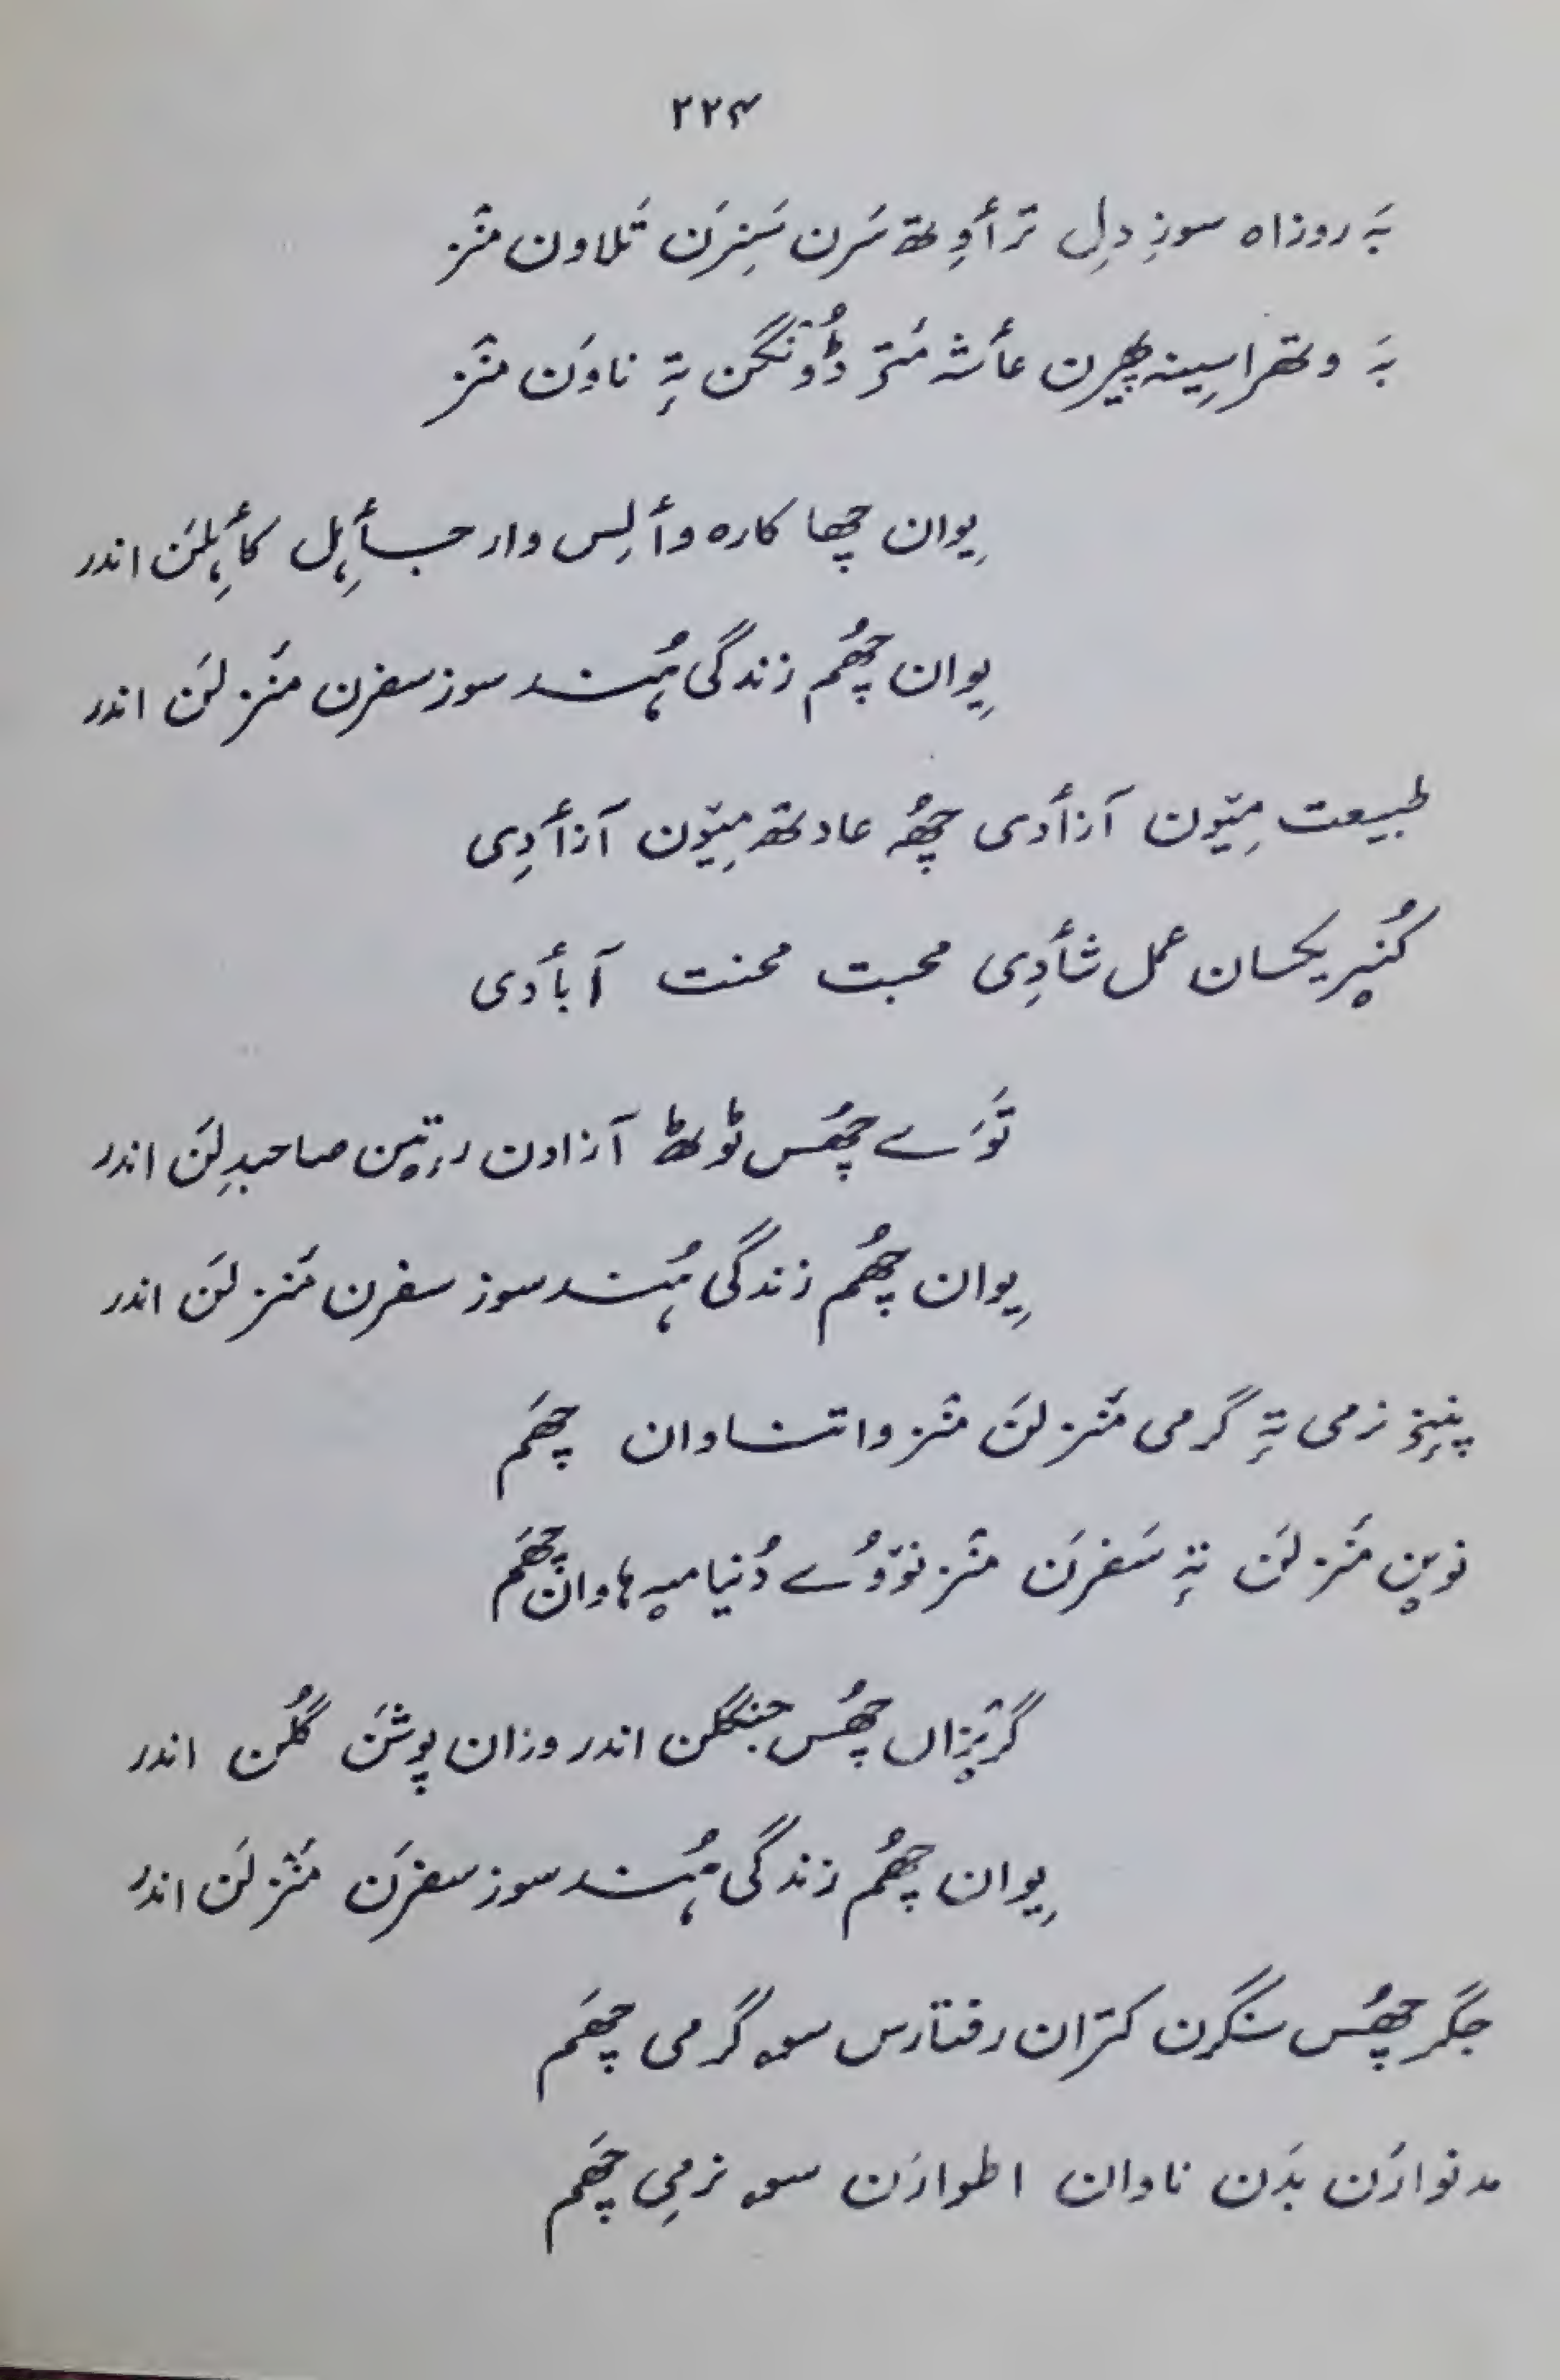 ۲۲۴
بہَ روزاہ سوزِ دِل ترٲوِتھ سَرن سَنِرَن تَلاون منٛز
بہَ وتھراسِینہ پھیرن عٲشہ مَتۍ ڈُونٛگن تہٕ ناوَن منٛز
یِوان چھا کارہ وٲلِس وار جٲہِل کٲہِلَن اندر
یِوان چھُم زندگی ہُند سوز سفرن مَنزلَن اندر
طبیعت میٚون آزٲدی چھُہ عادتھ میٚون آزٲدِی
کُنیر یکسان عمل شٲدِی محبت محنت آبٲدی
توَے چھُس ٹوٹھ آزادن رتؠن صاحبدِلَن اندر
یِوان چھُم زندگی ہُند سوز سفرن مَنزلَن اندر
پننِۍ نرمی تہٕ گرمی مَنزلَن منٛز واتناوان چھَم
نوؠن مَنزلَن تہٕ سَفرَن منٛز نوٚوُے دُنیا میہ ہاوان چھَم
گریٚزاں چھُس جنگلن اندر وزان پوشَن گُلَن اندر
یِوان چھُم زندگی ہُند سوز سفرَن مَنٛزلَن اندر
جگر چھُس سنگرن کتران رفتارس سۄ گرمی چھَم
مدنوارَن بدَن ناوان اطوارَن سۄ نرمِی چھَم